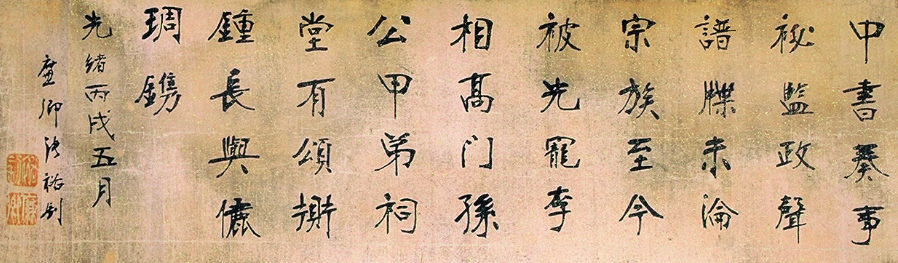 中書奏事
祕監政聲
譜牒未淪
宗族至今
被光寵李
相高門孫
公甲第祠
堂有頌
鍾長與儷
琱鐫
光緒丙戌五月
廉卿張裕釗